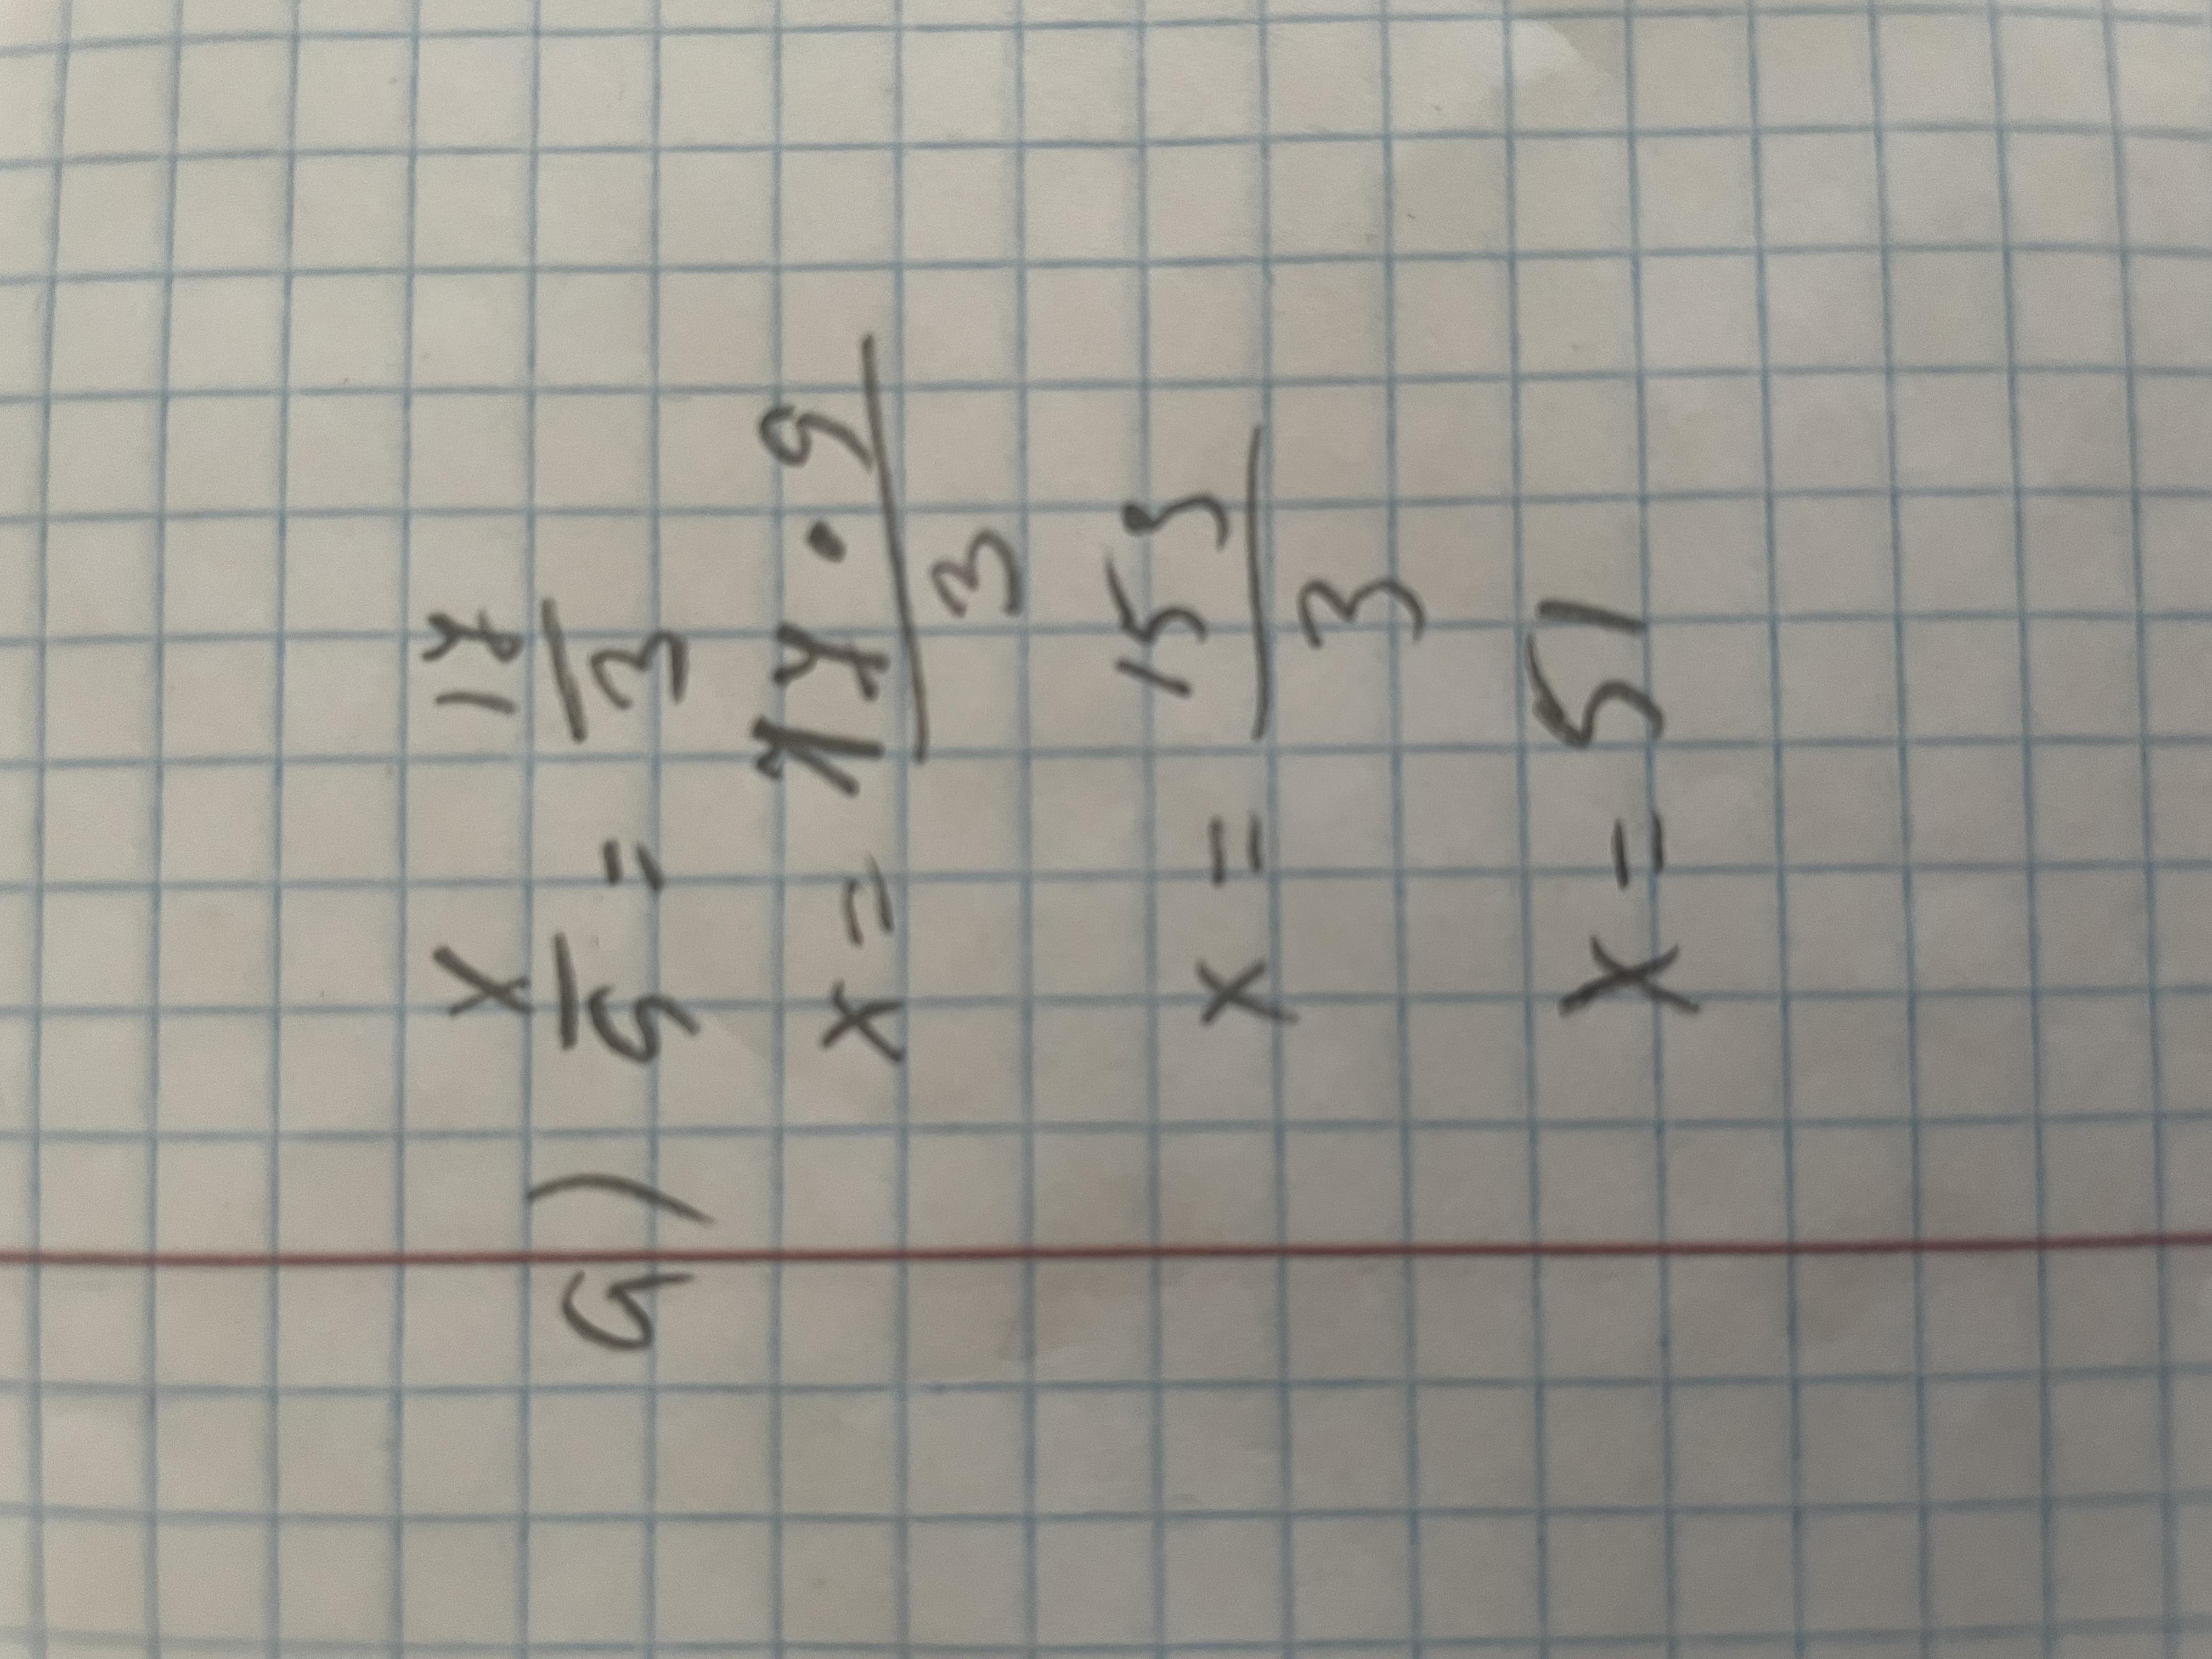 9) x/9 = 17/3
x = 17 · 9/3
x = 153/3
x = 51